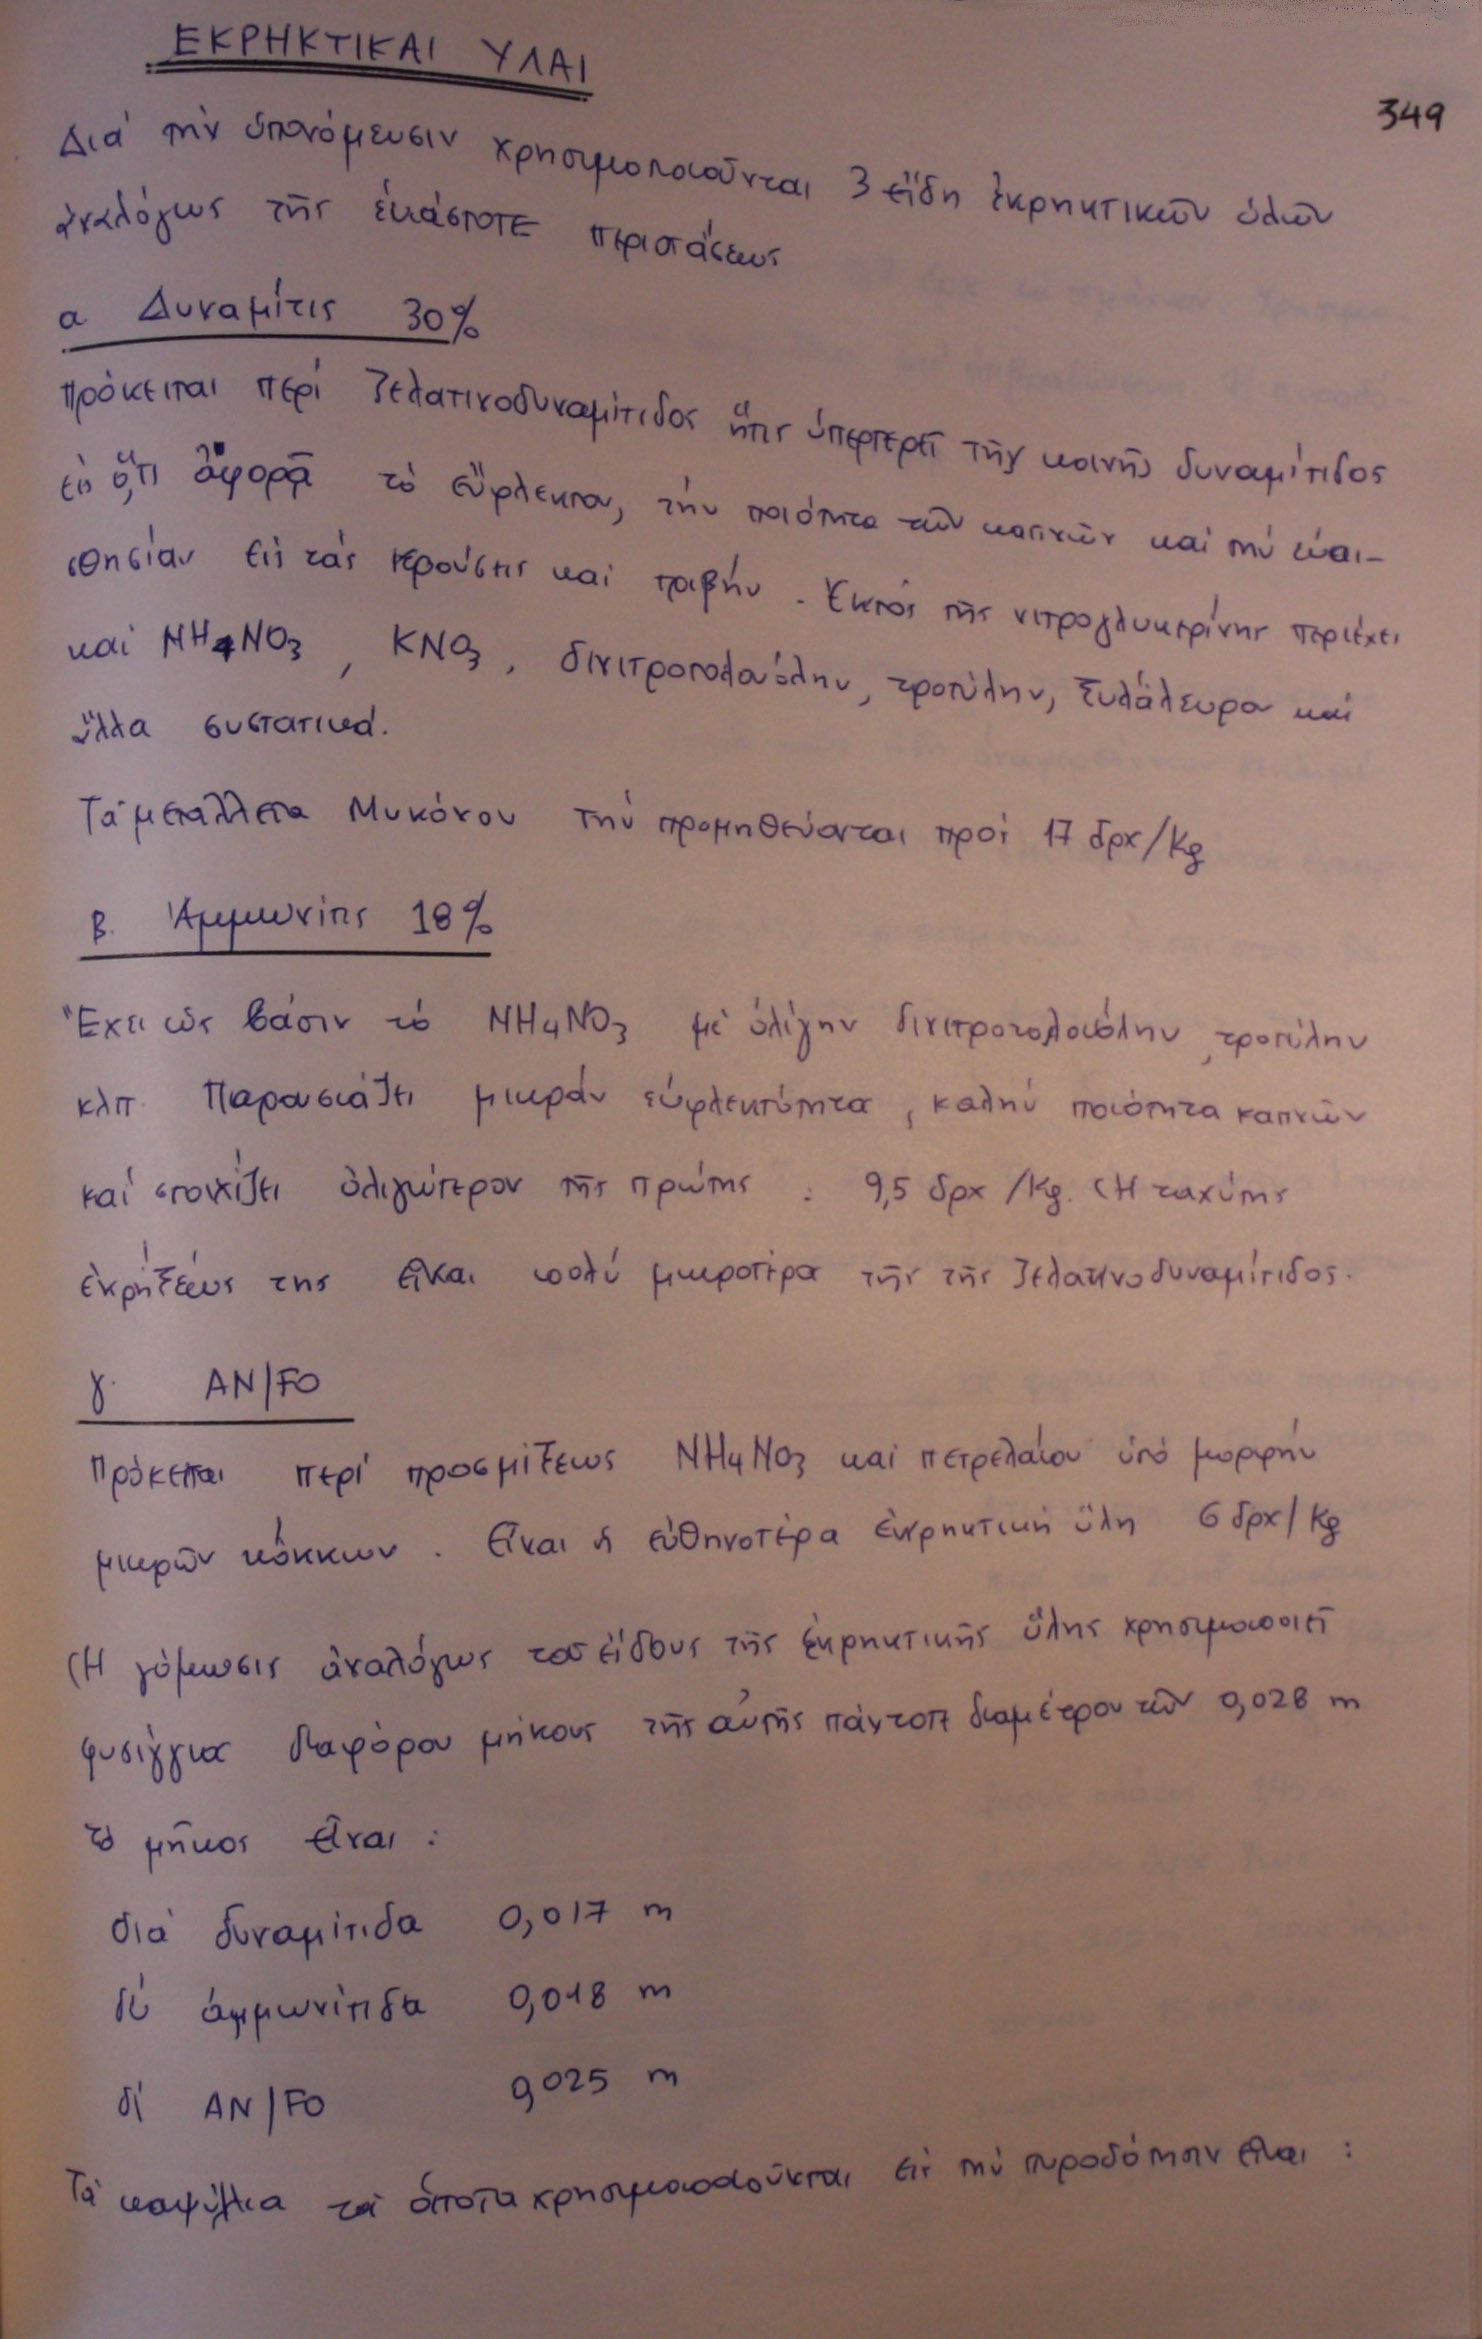 ΕΚΡΗΚΤΙΚΑΙ ΥΛΑΙ
349
Διά τήν ὑπονόμευσιν χρησιμοποιοῦνται 3 εἴδη ἐκρηκτικῶν ὑλῶν
ἀναλόγως τῆς ἑκάστοτε περιστάσεως
α Δυναμίτις 30%
Πρόκειται περί ζελατινοδυναμίτιδος ἥτις ὑπερτερεῖ τῆς κοινῆς δυναμίτιδος
εἰς ὅ,τι ἀφορᾷ τό εὔφλεκτον, τήν ποιότητα τῶν καπνῶν καί τήν εὐαι-
σθησίαν εἰς τάς κρούσεις καί τριβήν. Ἐκτός τῆς νιτρογλυκερίνης περιέχει
καί NH4NO3, KNO3, δινιτροτολουόλην, τροτύλην, ξυλάλευρον καί
ἄλλα συστατικά.
Τά μεταλλεῖα Μυκόνου τήν προμηθεύονται πρός 17 δρχ/kg
β. Ἀμμωνίτις 18%
Ἔχει ὡς βάσιν τό NH4NO3 μέ ὀλίγην δινιτροτολουόλην, τροτύλην
κλπ. Παρουσιάζει μικράν εὐφλεκτότητα, καλήν ποιότητα καπνῶν
καί στοιχίζει ὀλιγώτερον τῆς πρώτης : 9,5 δρχ/kg. Ἡ ταχύτης
ἐκρήξεώς της εἶναι πολύ μικροτέρα τῆς τῆς ζελατινοδυναμίτιδος.
γ. AN/FO
Πρόκειται περί προσμίξεως NH4NO3 καί πετρελαίου ὑπό μορφήν
μικρῶν κόκκων. Εἶναι ἡ εὐθηνοτέρα ἐκρηκτική ὕλη 6 δρχ/kg
Ἡ γόμωσις ἀναλόγως τοῦ εἴδους τῆς ἐκρηκτικῆς ὕλης χρησιμοποιεῖ
φυσίγγια διαφόρου μήκους τῆς αὐτῆς πάντοτε διαμέτρου τῶν 0,028 m
τό μῆκος εἶναι :
διά δυναμίτιδα 0,017 m
δι' ἀμμωνίτιδα 0,018 m
δι' AN/FO 0,025 m
Τά καψύλλια τά ὁποῖα χρησιμοποιοῦνται εἰς τήν πυροδότησιν εἶναι :